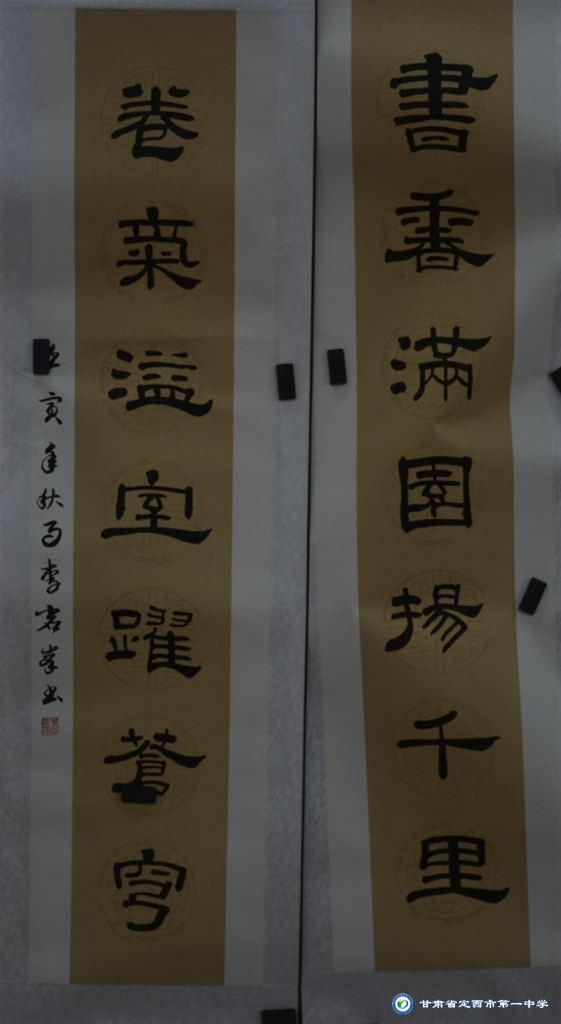 書香滿園揚千里
卷氣溢室躍蒼穹
壬寅年秋月李峯书
甘肃省定西市第一中学